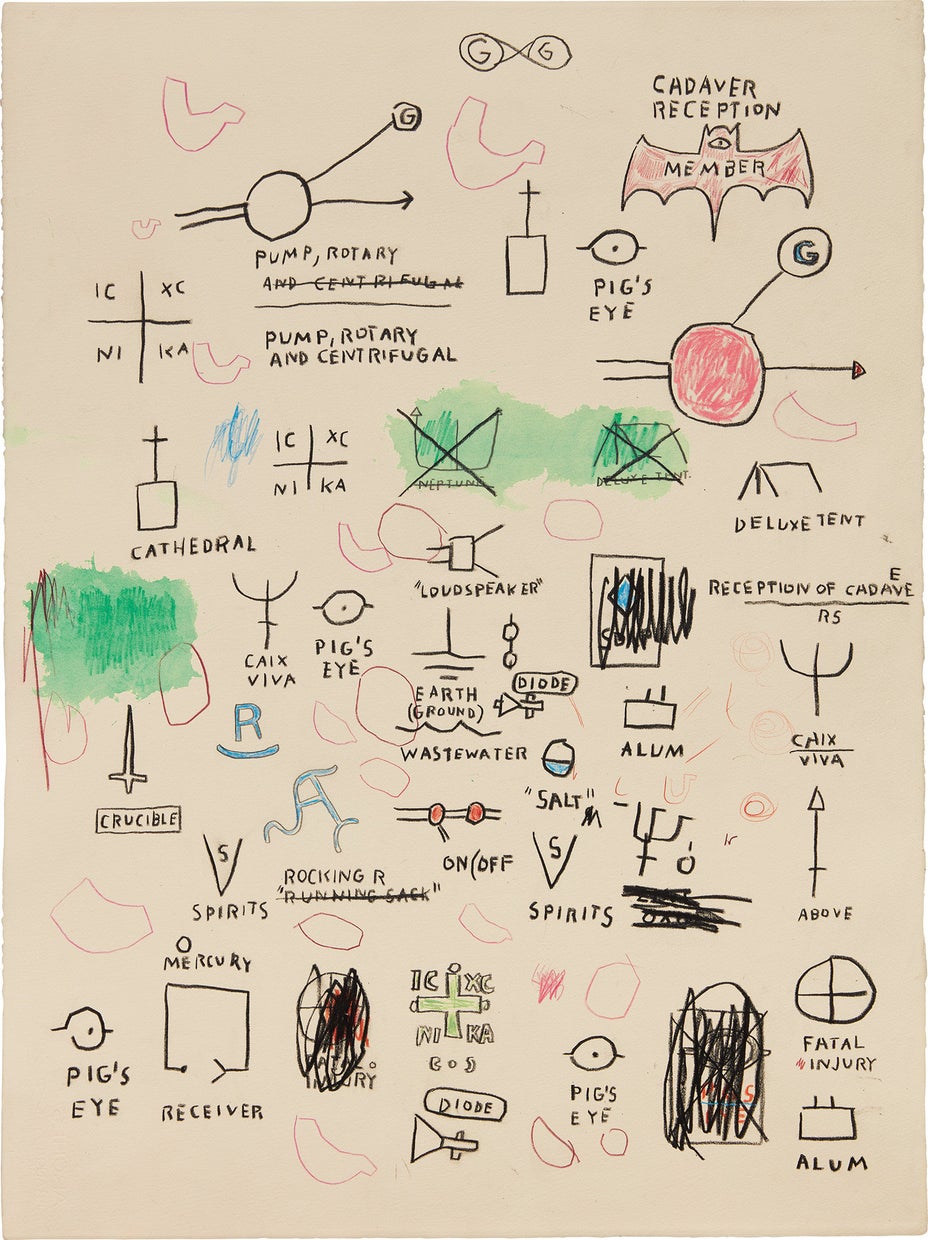 G G
CADAVER
RECEPTION
MEMBER
G
PUMP, ROTARY
AND CENTRIFUGAL
PUMP, ROTARY
AND CENTRIFUGAL
PIG'S
EYE
G
IC XC
NI KA
IC XC
NI KA
NEPTUNE
DELUXE TENT.
DELUXE TENT
CATHEDRAL
"LOUDSPEAKER"
RECEPTION OF CADAVE
E
RS
CAIX
VIVA
PIG'S
EYE
EARTH
(GROUND)
DIODE
WASTEWATER
ALUM
CAIX
VIVA
R
"SALT"
CRUCIBLE
A
S
SPIRITS
ROCKING R
"RUNNING SACK"
ON/OFF
S
SPIRITS
ABOVE
MERCURY
PIG'S
EYE
RECEIVER
INJURY
IC XC
NI KA
DIODE
PIG'S
EYE
FATAL
"INJURY
ALUM